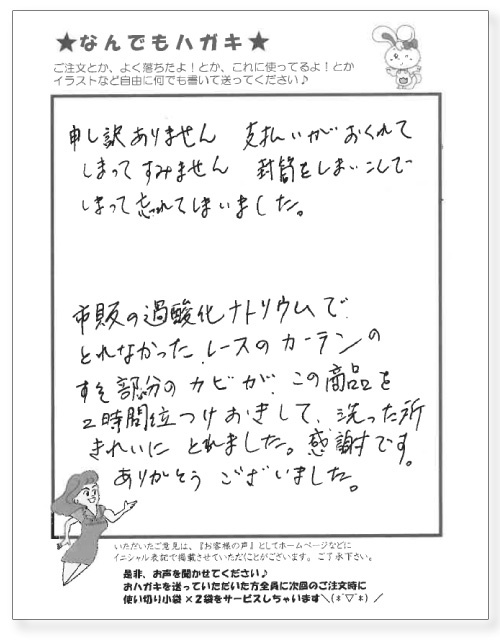 ★なんでもハガキ★
ご注文とか、よく落ちたよ！とか、これに使ってるよ！とか
イラストなど自由に何でも書いて送ってください♪
申し訳ありません 支払いがおくれて
しまってすみません 封筒をしまいこんで
しまって忘れてしまいました。
市販の過酸化ナトリウムで
とれなかった レースのカーテンの
すそ部分のカビが、この商品を
2時間位つけおきして、洗った所
きれいに とれました。感謝です。
ありがとう ございました。
いただいたご意見は、『お客様の声』としてホームページなどに
イニシャル表記で掲載させていただくことがございます。ご了承下さい。
是非、お声を聞かせてください♪
おハガキを送っていただいた方全員に次回のご注文時に
使い切り小袋×2袋をサービスしちゃいます＼(*ˊ▽ˋ*)／